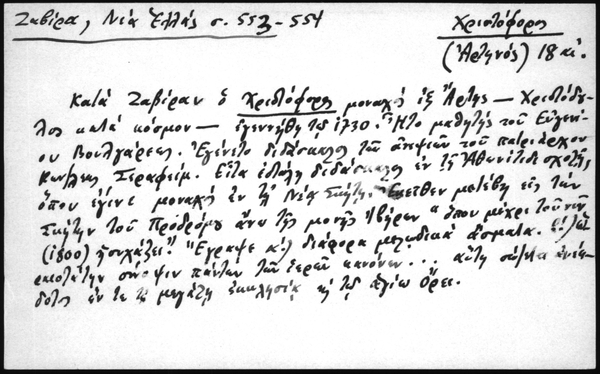 Ζαβίρα, Νέα Ἑλλάς σ. 553-554
Χριστόφορος
(Ἀρτηνός) 18 αἰ.
Κατά Ζαβίραν ὁ Χριστόφορος μοναχός ἐξ Ἄρτης — Χριστόδου-
λος κατά κόσμον — ἐγεννήθη τῷ 1730. Ἦτο μαθητής τοῦ Εὐγενί-
ου Βουλγάρεως. Ἐγένετο διδάσκαλος τῶν ἀνεψιῶν τοῦ πατριάρχου
Κων/λεως Σεραφείμ. Εἶτα ἐστάλη διδάσκαλος ἐν τῇ Ἀθωνιάδι σχολῇ,
ὅπου ἐγινε μοναχός ἐν τῇ Νέᾳ Σκήτῃ. Ἐκεῖθεν μετέβη εἰς τήν
Σκήτην τοῦ Προδρόμου ἄνω τῆς μονῆς Ἰβήρων "ὅπου μέχρι τοῦ νῦν
(1800) ἡσυχάζει". "Ἔγραψε καί διάφορα μελωδικά ᾄσματα.
σύνοψιν πάντων τῶν ἱερῶν κανόνων... αὕτη σώζεται ἀνέκ-
δοτος ἐν τε τῇ μεγάλῃ ἐκκλησίᾳ καί τῷ ἁγίῳ ὄρει.